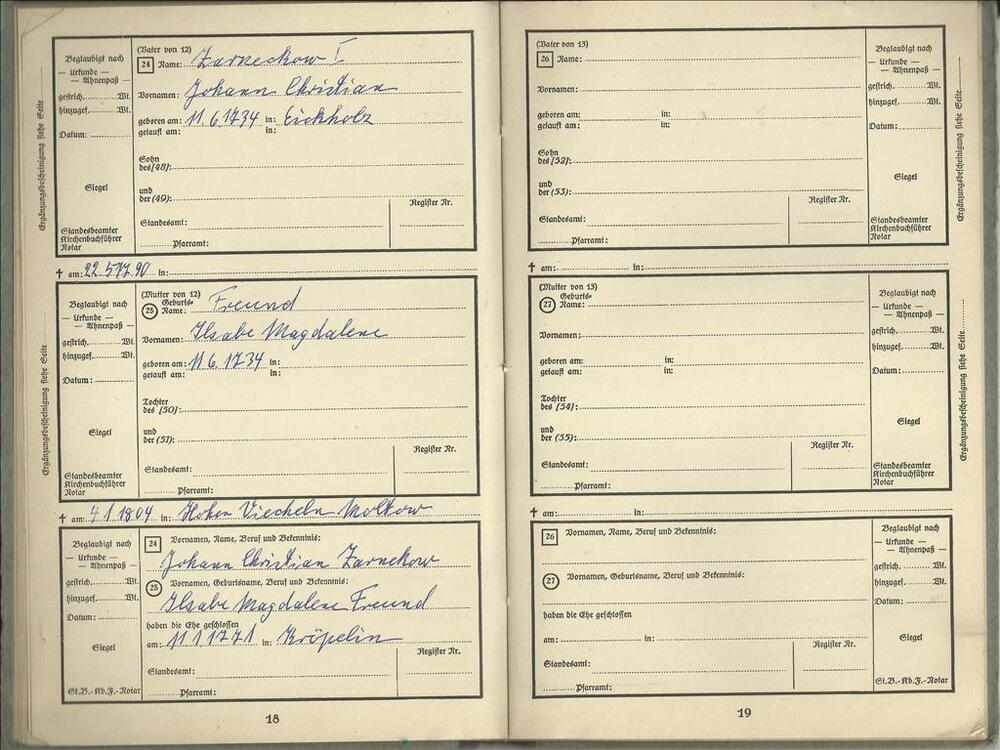 Ergänzungsbescheinigung siehe Seite
Beglaubigt nach
— Urkunde —
— Ahnenpaß —
gestrich. Wt.
hinzugef. Wt.
Datum:
Siegel
Standesbeamter
Kirchenbuchführer
Notar
(Vater von 12)
24 Name: Zarneckow I
Vornamen: Johann Christian
geboren am: 11.6.1734 in: Eickholz
getauft am: in:
Sohn
des (48):
und
der (49):
Register Nr.
Standesamt:
Pfarramt:
† am: 22.5.17.90 in:
Ergänzungsbescheinigung siehe Seite
Beglaubigt nach
— Urkunde —
— Ahnenpaß —
gestrich. Wt.
hinzugef. Wt.
Datum:
Siegel
Standesbeamter
Kirchenbuchführer
Notar
(Mutter von 12)
25 Geburts-
Name: Freund
Vornamen: Ilsabe Magdalene
geboren am: 11.6.1734 in:
getauft am: in:
Tochter
des (50):
und
der (51):
Register Nr.
Standesamt:
Pfarramt:
† am: 4.1.1804 in: Hohen Viecheln Moltow
Beglaubigt nach
— Urkunde —
— Ahnenpaß —
gestrich. Wt.
hinzugef. Wt.
Datum:
Siegel
St.B.-Kb.F.-Notar
24 Vornamen, Name, Beruf und Bekenntnis:
Johann Christian Zarnekow
25 Vornamen, Geburtsname, Beruf und Bekenntnis:
Ilsabe Magdalene Freund
haben die Ehe geschlossen
am: 11.1.1771 in: Kröpelin
Register Nr.
Standesamt:
Pfarramt:
18
(Vater von 13)
26 Name:
Vornamen:
geboren am: in:
getauft am: in:
Sohn
des (52):
und
der (53):
Register Nr.
Standesamt:
Pfarramt:
Beglaubigt nach
— Urkunde —
— Ahnenpaß —
gestrich. Wt.
hinzugef. Wt.
Datum:
Siegel
Standesbeamter
Kirchenbuchführer
Notar
Ergänzungsbescheinigung siehe Seite
† am: in:
(Mutter von 13)
27 Geburts-
Name:
Vornamen:
geboren am: in:
getauft am: in:
Tochter
des (54):
und
der (55):
Register Nr.
Standesamt:
Pfarramt:
Beglaubigt nach
— Urkunde —
— Ahnenpaß —
gestrich. Wt.
hinzugef. Wt.
Datum:
Siegel
Standesbeamter
Kirchenbuchführer
Notar
Ergänzungsbescheinigung siehe Seite
† am: in:
26 Vornamen, Name, Beruf und Bekenntnis:
27 Vornamen, Geburtsname, Beruf und Bekenntnis:
haben die Ehe geschlossen
am: in:
Register Nr.
Standesamt:
Pfarramt:
Beglaubigt nach
— Urkunde —
— Ahnenpaß —
gestrich. Wt.
hinzugef. Wt.
Datum:
Siegel
St.B.-Kb.F.-Notar
19